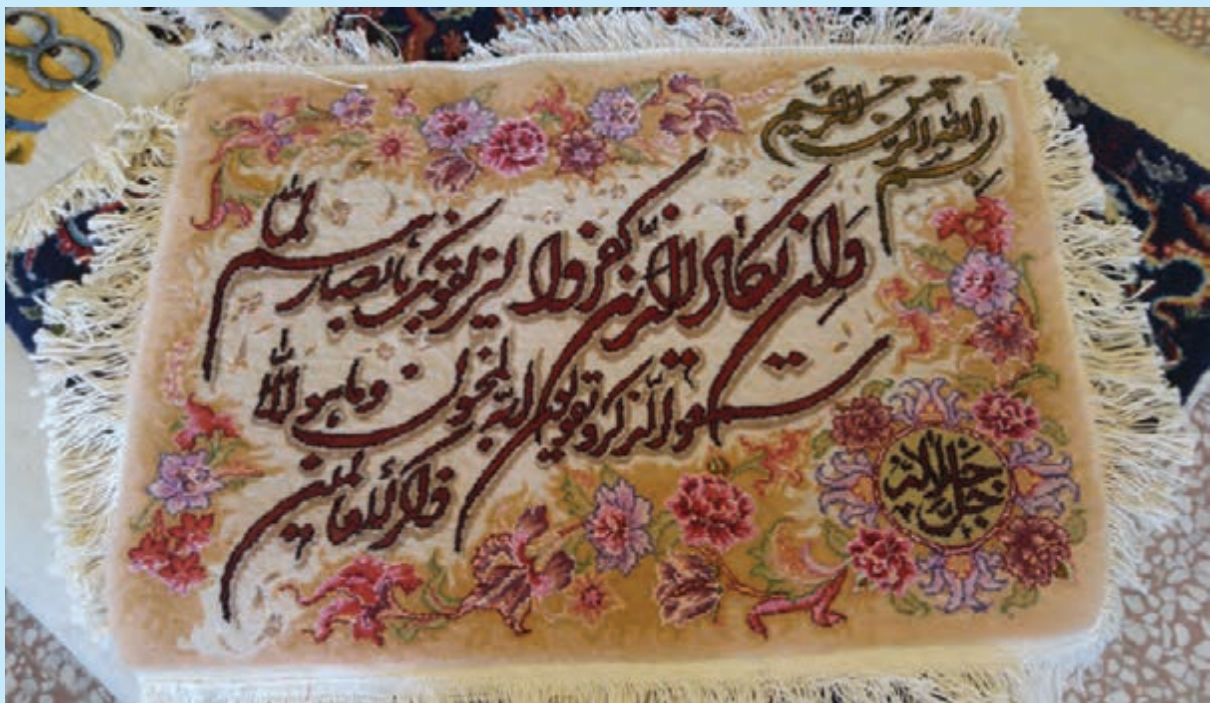 بسم الله الرحمن الرحيم
وان يكاد الذين كفروا ليزلقونك بابصارهم لما
سمعوا الذكر و يقولون انه لمجنون وما هو الا
ذكر للعالمين
جل جلاله